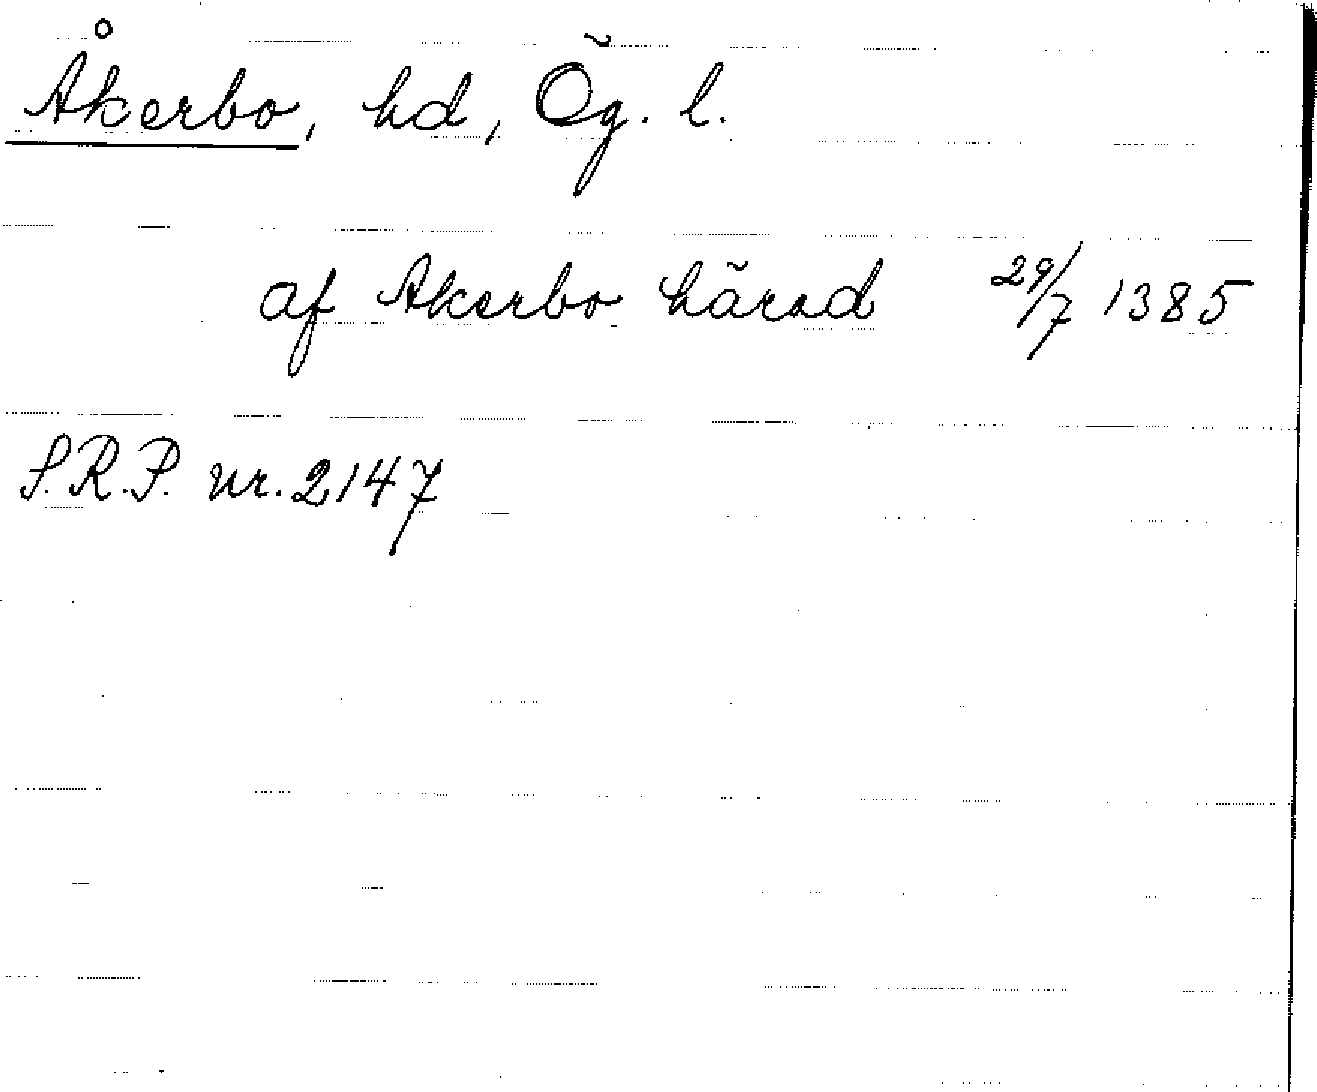 Åkerbo, hd, Ög. l.
af Akerbo härad 29/7 1385
S.R.P. nr. 2147